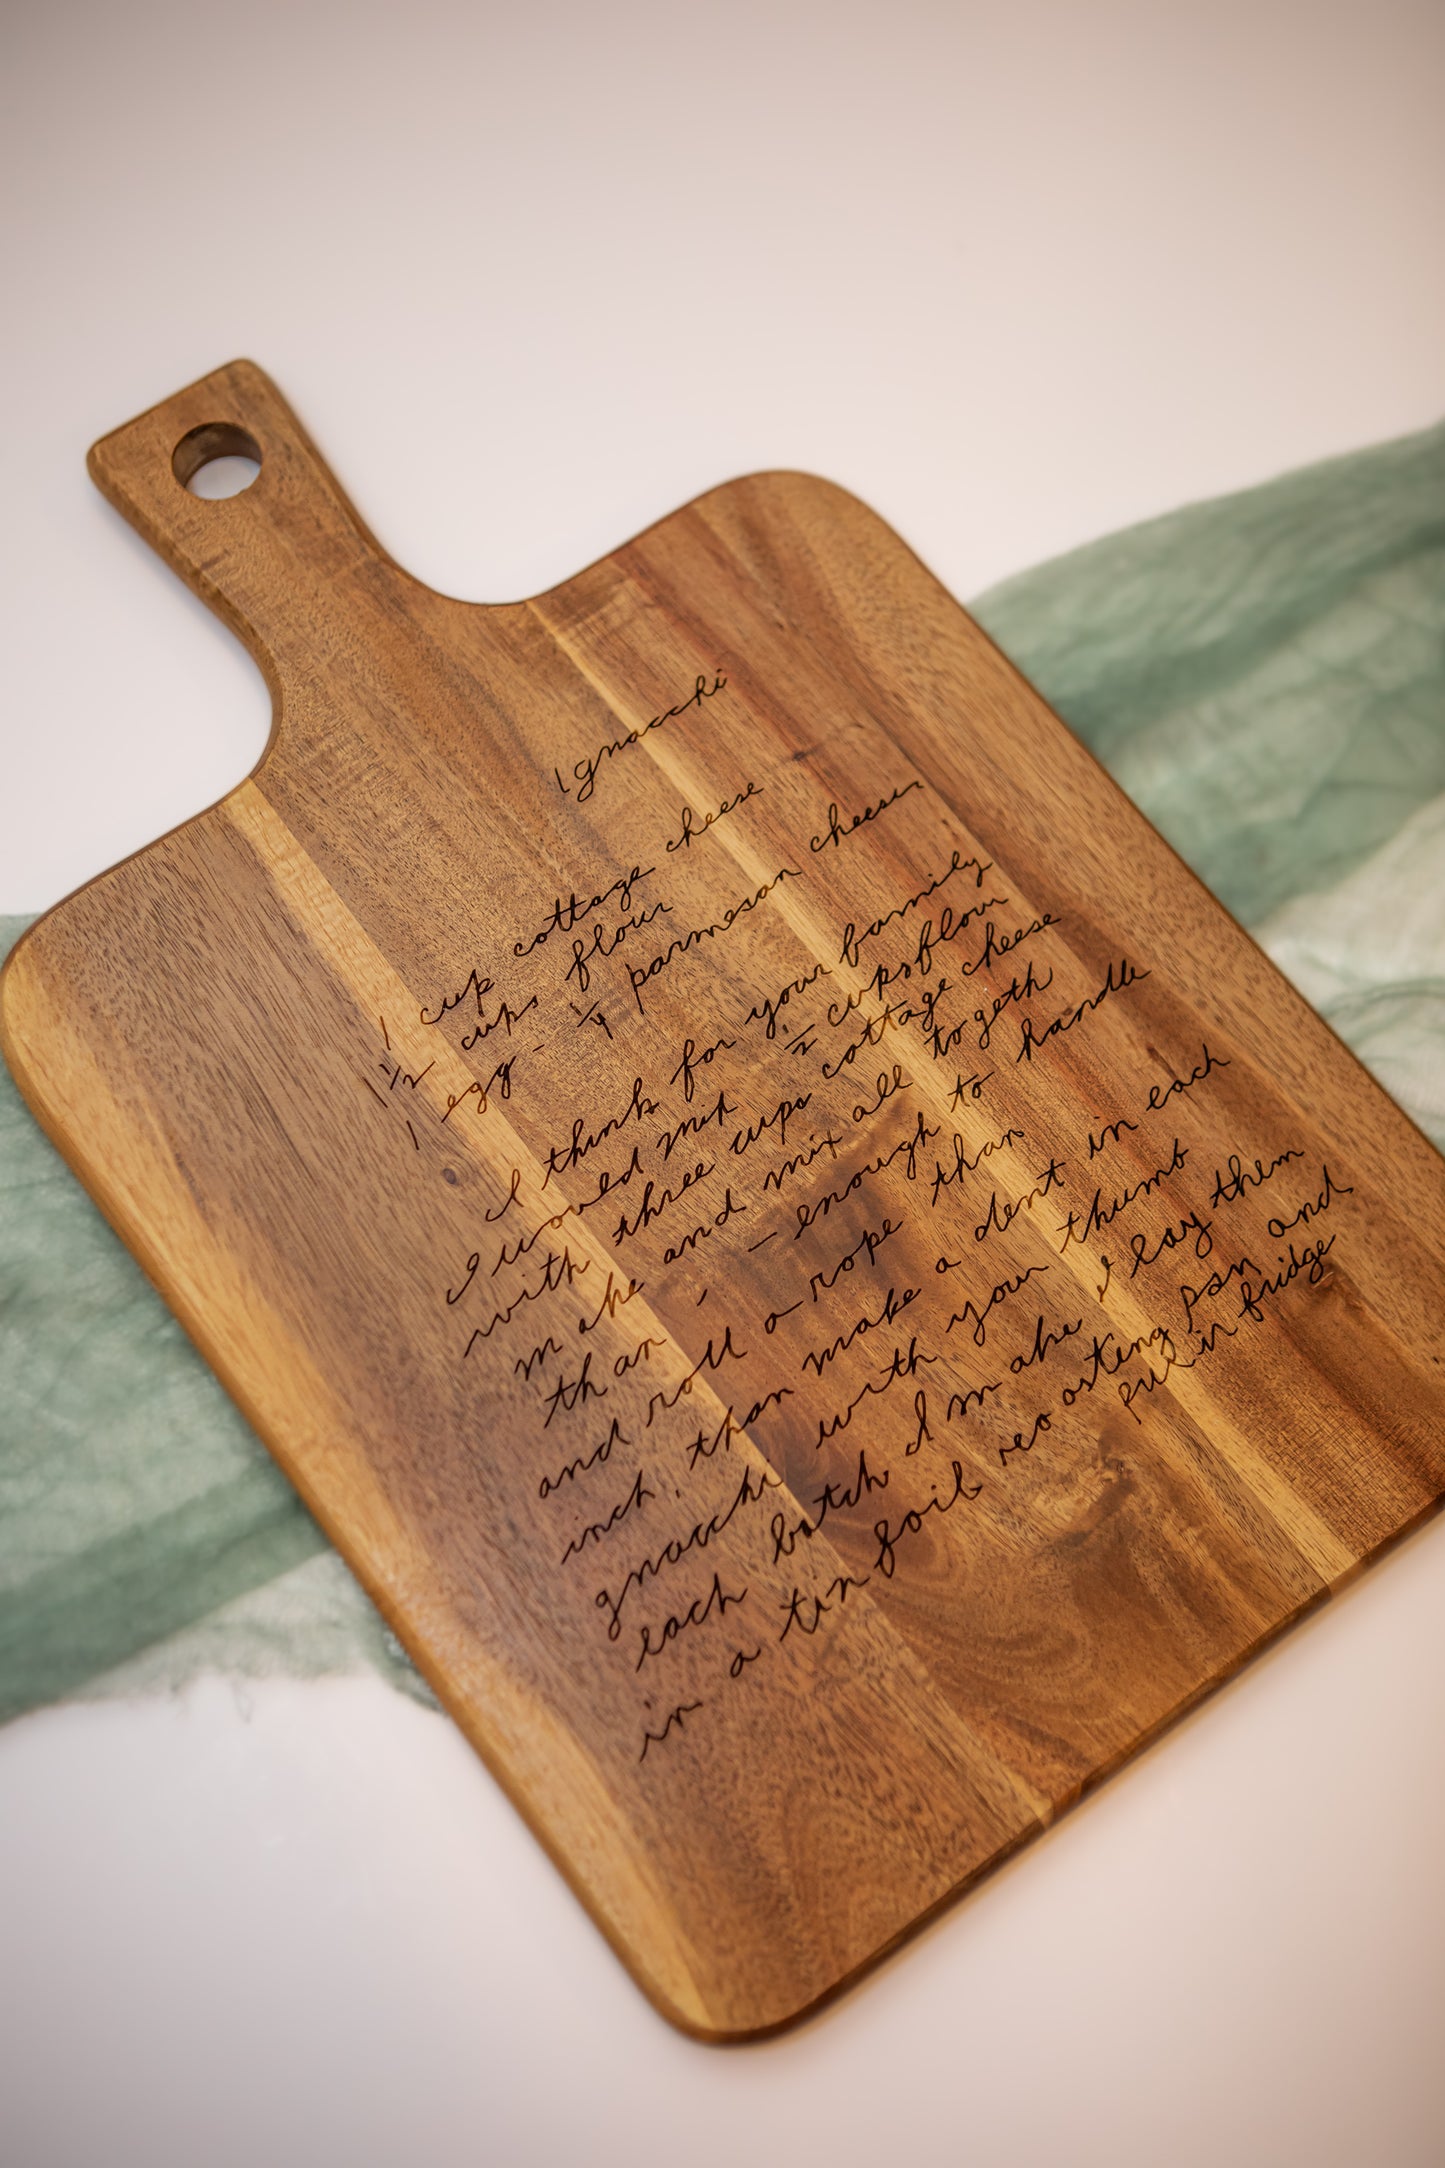 gnocchi
1 cup cottage cheese
1 1/2 cups flour
1 egg - 1/4 parmesan cheese
I think for your family
I would mix 1/2 cups flour
with three cups cottage cheese
make and mix all togeth
than - - enough to handle
and roll a rope than
inch, than make a dent in each
gnocchi with your thumb
each batch I make I lay them
in a tin foil roasting pan and
put in fridge